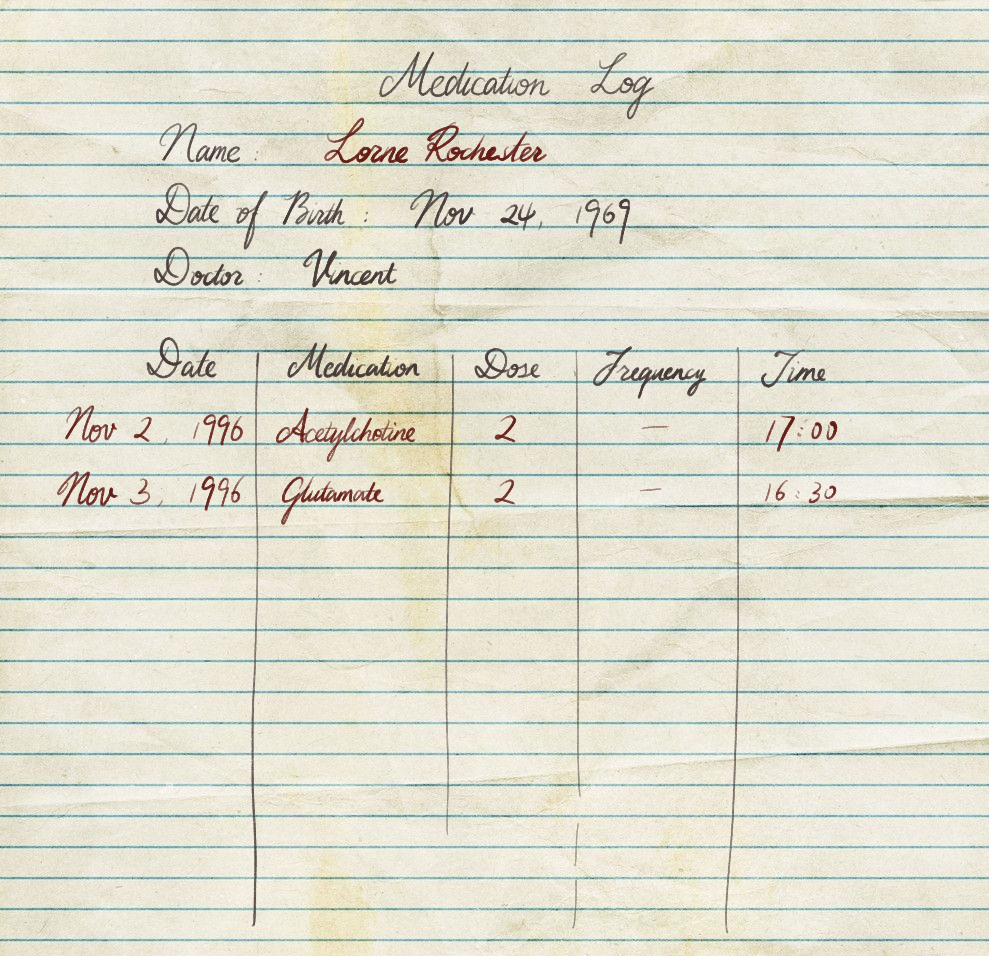 Medication Log
Name : Lorne Rochester
Date of Birth : Nov 24, 1969
Doctor : Vincent
Date Medication Dose Frequency Time
Nov 2, 1996 Acetylchotine 2 — 17:00
Nov 3, 1996 Glutamate 2 — 16:30